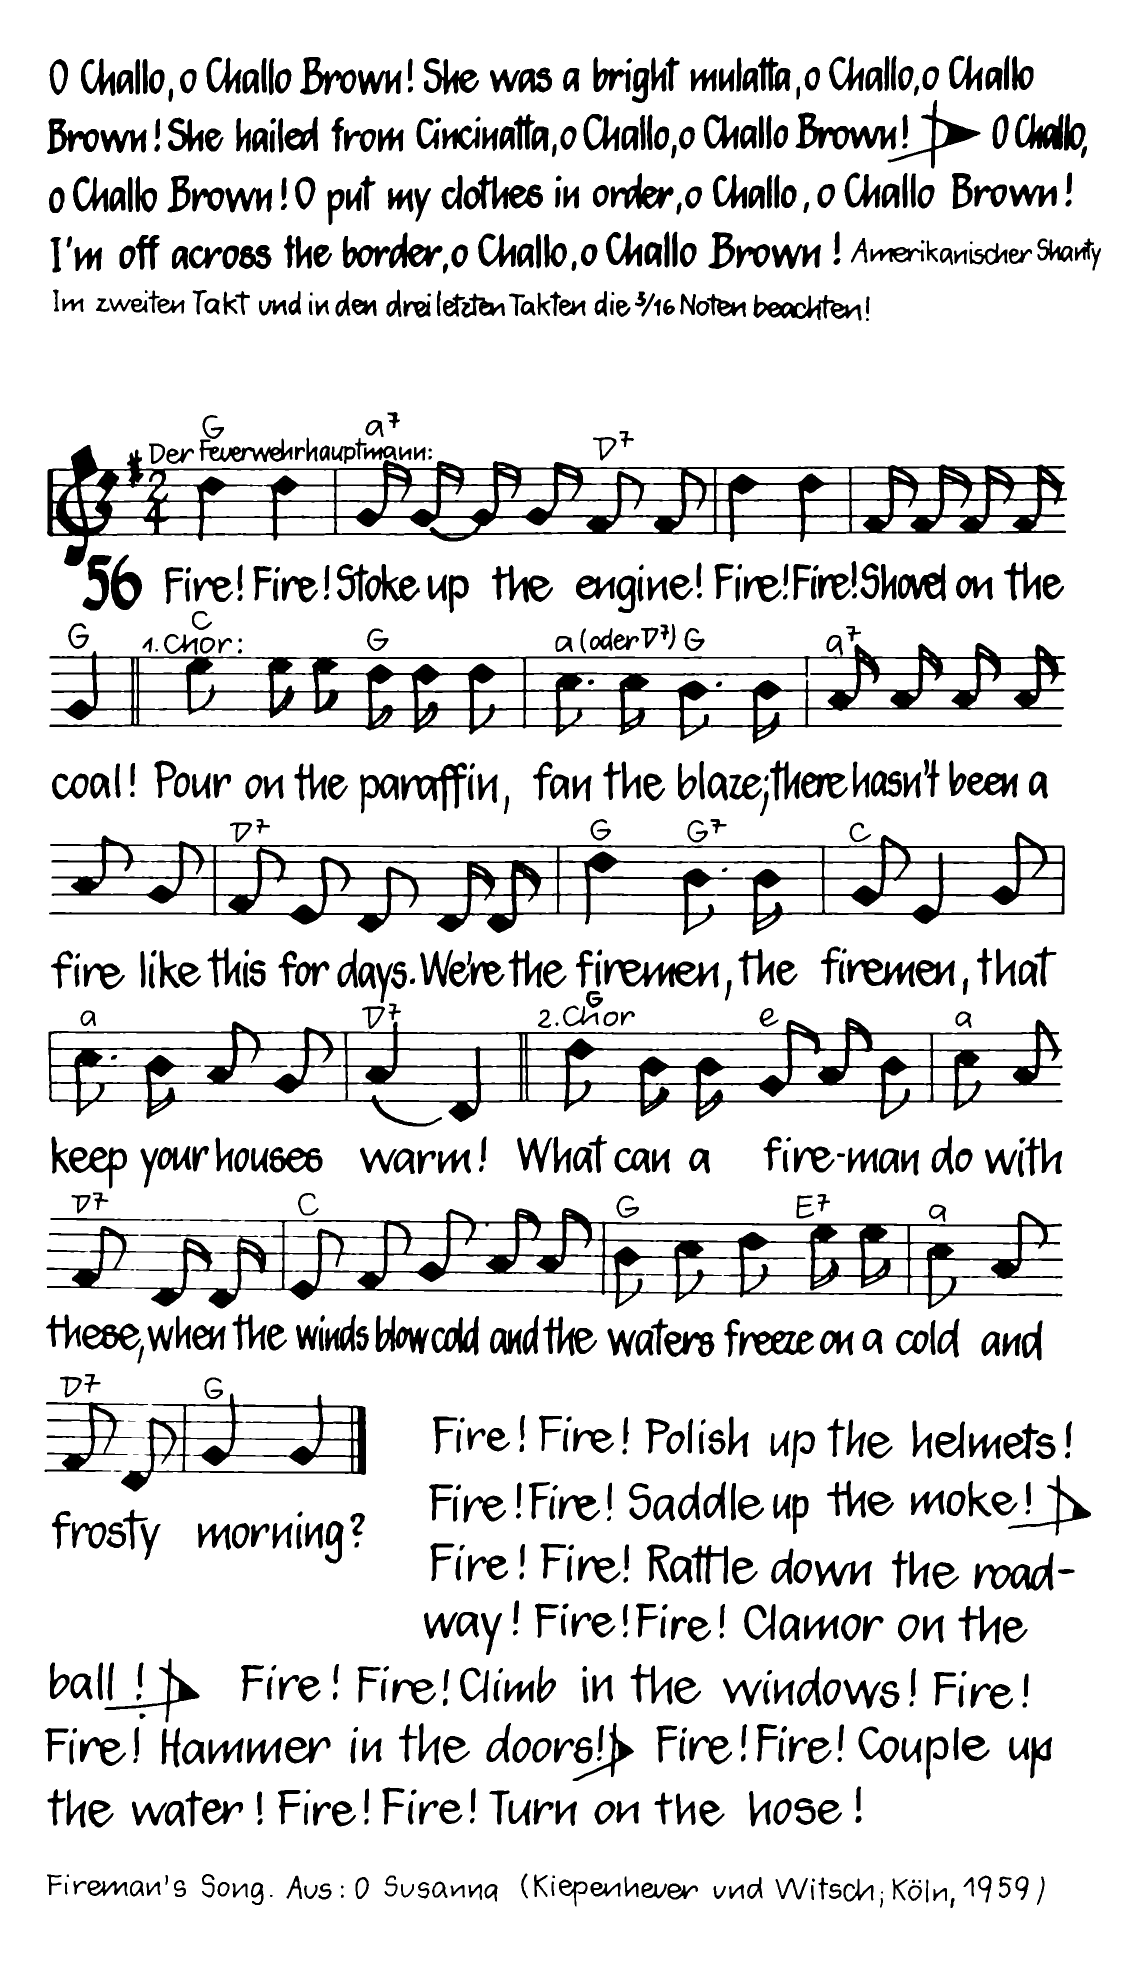 O Challo, o Challo Brown! She was a bright mulatta, o Challo, o Challo
Brown! She hailed from Cincinatta, o Challo, o Challo Brown! O Challo,
o Challo Brown! O put my clothes in order, o Challo, o Challo Brown!
I'm off across the border, o Challo, o Challo Brown! Amerikanischer Shanty
Im zweiten Takt und in den drei letzten Takten die 3/16 Noten beachten!
G a7 D7
Der Feuerwehrhauptmann:
2
4
56 Fire! Fire! Stoke up the engine! Fire! Fire! Shovel on the
G 1. Chor: C G a (oder D7) G a7
coal! Pour on the paraffin, fan the blaze; there hasn't been a
D7 G G7 C
fire like this for days. We're the firemen, the firemen, that
a D7 2. Chor G e a
keep your houses warm! What can a fire-man do with
D7 C G E7 a
these, when the winds blow cold and the waters freeze on a cold and
D7 G
frosty morning?
Fire! Fire! Polish up the helmets!
Fire! Fire! Saddle up the moke!
Fire! Fire! Rattle down the road-
way! Fire! Fire! Clamor on the
ball! Fire! Fire! Climb in the windows! Fire!
Fire! Hammer in the doors! Fire! Fire! Couple up
the water! Fire! Fire! Turn on the hose!
Fireman's Song. Aus: O Susanna (Kiepenheuer und Witsch; Köln, 1959)